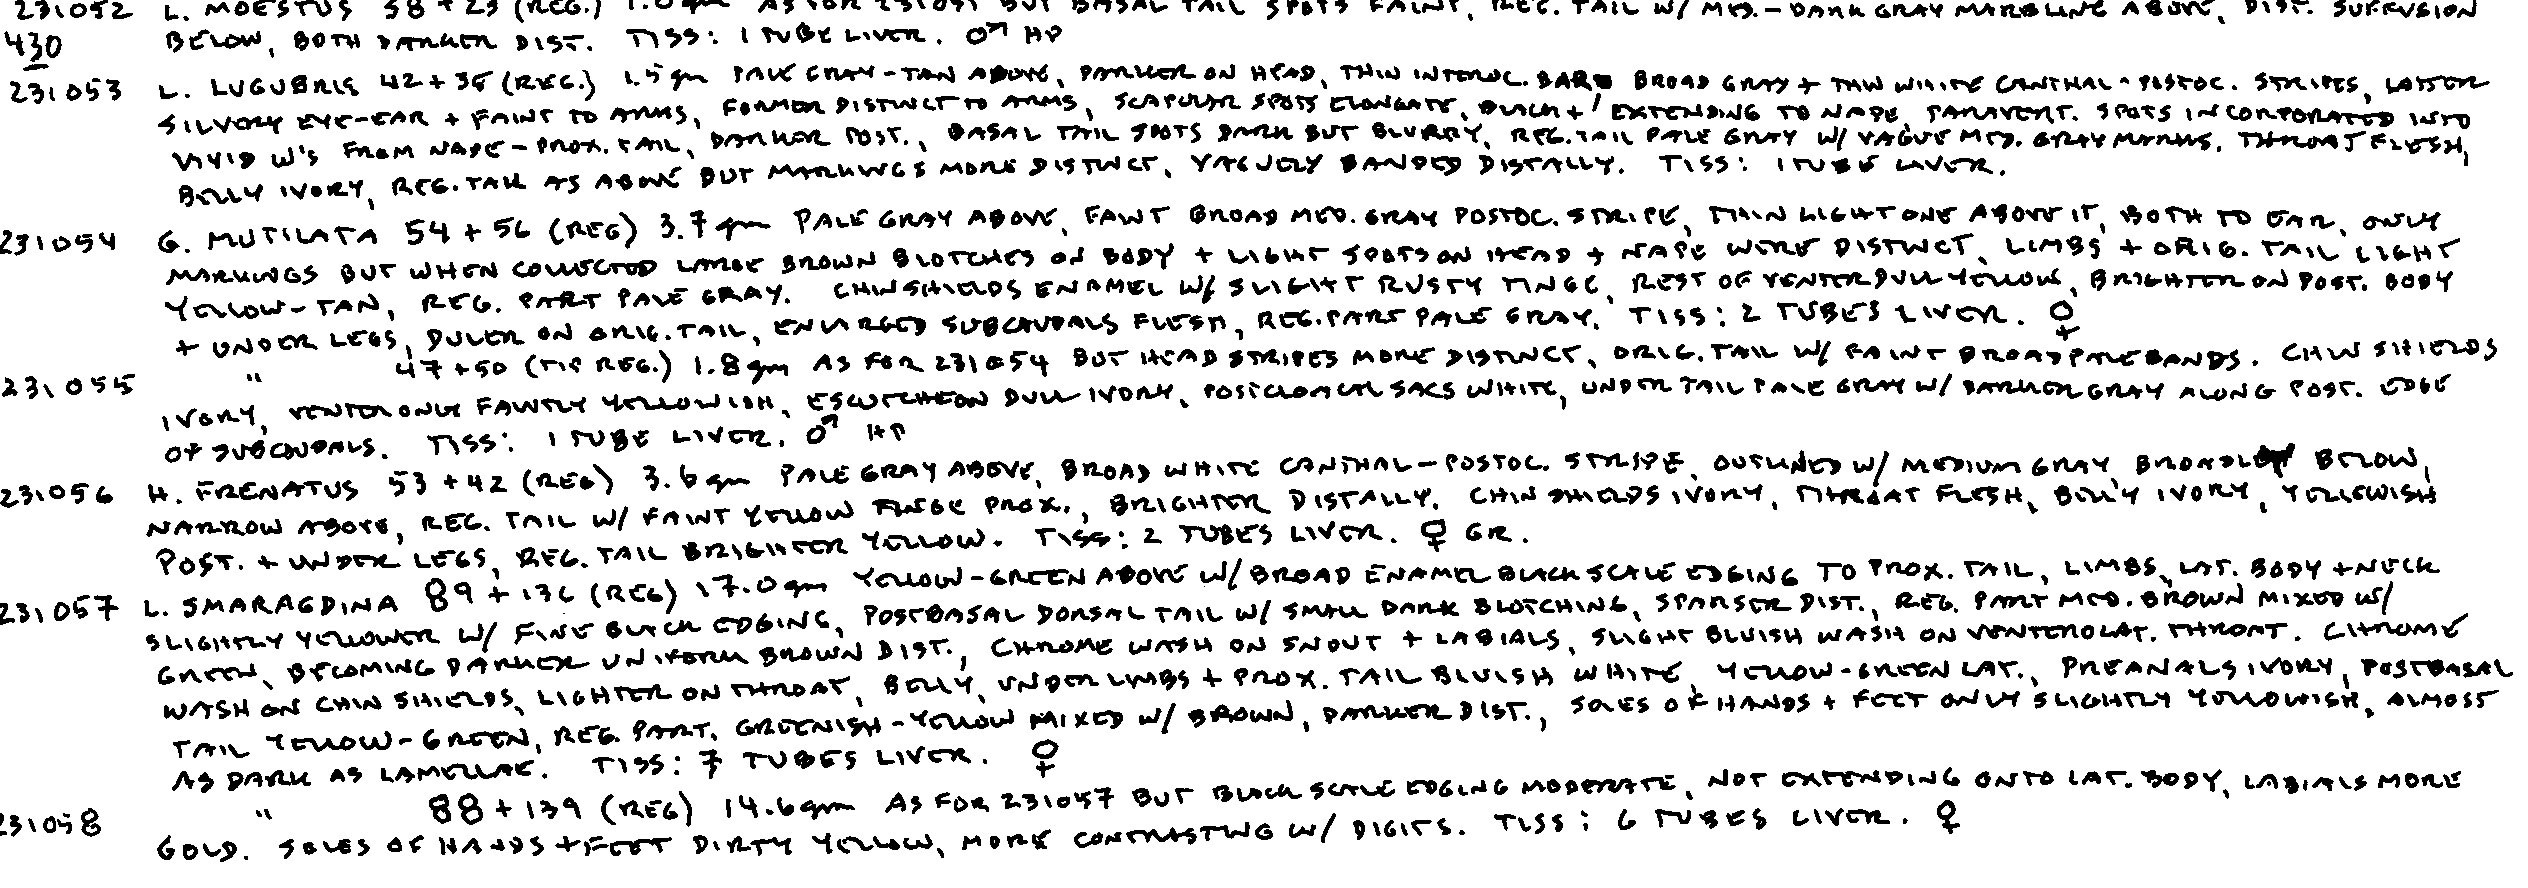 231052 L. MOESTUS 38 + 23 (REG.) 1.0 gm AS FOR 231051 BUT BASAL TAIL SPOTS FAINT, REG. TAIL W/ MED.-DARK GRAY MARBLING ABOVE, DIST. SUFFUSION
430 BELOW, BOTH DARKER DIST. TISS: 1 TUBE LIVER. ♂ HP
231053 L. LUGUBRIS 42 + 36 (REG.) 1.5 gm PALE GRAY-TAN ABOVE, DARKER ON HEAD, THIN INTEROC. BAR, BROAD GRAY + THIN WHITE CANTHAL-POSTOC. STRIPES, LATTER
SILVERY EYE-EAR + FAINT TO ARMS, FORMER DISTINCT TO ARMS, SCAPULAR SPOTS ELONGATE, BLACK + EXTENDING TO NAPE, PARAVERT. SPOTS INCORPORATED INTO
VIVID W'S FROM NAPE-PROX. TAIL, DARKER POST., BASAL TAIL SPOTS DARK BUT BLURRY, REG. TAIL PALE GRAY W/ VAGUE MED. GRAY MARKS. THROAT FLESH,
BELLY IVORY, REG. TAIL AS ABOVE BUT MARKINGS MORE DISTINCT, VAGUELY BANDED DISTALLY. TISS: 1 TUBE LIVER.
231054 G. MUTILATA 54 + 56 (REG) 3.7 gm PALE GRAY ABOVE, FAINT BROAD MED. GRAY POSTOC. STRIPE, THIN LIGHT ONE ABOVE IT, BOTH TO EAR, ONLY
MARKINGS BUT WHEN COLLECTED LARGE BROWN BLOTCHES ON BODY + LIGHT SPOTS ON HEAD + NAPE WERE DISTINCT, LIMBS + ORIG. TAIL LIGHT
YELLOW-TAN, REG. PART PALE GRAY. CHIN SHIELDS ENAMEL W/ SLIGHT RUSTY TINGE, REST OF VENTER DULL YELLOW, BRIGHTER ON POST. BODY
+ UNDER LEGS, DULLER ON ORIG. TAIL, ENLARGED SUBCAUDALS FLESH, REG. PART PALE GRAY. TISS: 2 TUBES LIVER. ♀
231055 " 47 + 50 (TIP REG.) 1.8 gm AS FOR 231054 BUT HEAD STRIPES MORE DISTINCT, ORIG. TAIL W/ FAINT BROAD PALE BANDS. CHIN SHIELDS
IVORY, VENTER ONLY FAINTLY YELLOWISH, ESCUTCHEON DULL IVORY, POSTCLOACAL SACS WHITE, UNDER TAIL PALE GRAY W/ DARKER GRAY ALONG POST. EDGE
OF SUBCAUDALS. TISS: 1 TUBE LIVER. ♂ HP
231056 H. FRENATUS 53 + 42 (REG) 3.6 gm PALE GRAY ABOVE, BROAD WHITE CANTHAL-POSTOC. STRIPE, OUTLINED W/ MEDIUM GRAY BROADLY BELOW,
NARROW ABOVE, REG. TAIL W/ FAINT YELLOW TINGE PROX., BRIGHTER DISTALLY. CHIN SHIELDS IVORY, THROAT FLESH, BELLY IVORY, YELLOWISH
POST. + UNDER LEGS, REG. TAIL BRIGHTER YELLOW. TISS: 2 TUBES LIVER. ♀ GR.
231057 L. SMARAGDINA 89 + 136 (REG) 17.0 gm YELLOW-GREEN ABOVE W/ BROAD ENAMEL BLACK SCALE EDGING TO PROX. TAIL, LIMBS, LAT. BODY + NECK
SLIGHTLY YELLOWER W/ FINE BLACK EDGING, POSTBASAL DORSAL TAIL W/ SMALL DARK BLOTCHING, SPARSER DIST., REG. PART MED. BROWN MIXED W/
GREEN, BECOMING DARKER UNIFORM BROWN DIST., CHROME WASH ON SNOUT + LABIALS, SLIGHT BLUISH WASH ON VENTEROLAT. THROAT. CHROME
WASH ON CHIN SHIELDS, LIGHTER ON THROAT, BELLY, UNDER LIMBS + PROX. TAIL BLUISH WHITE, YELLOW-GREEN LAT., PREANALS IVORY, POSTBASAL
TAIL YELLOW-GREEN, REG. PART. GREENISH-YELLOW MIXED W/ BROWN, DARKER DIST., SOLES OF HANDS + FEET ONLY SLIGHTLY YELLOWISH, ALMOST
AS DARK AS LAMELLAE. TISS: 7 TUBES LIVER. ♀
231058 " 88 + 139 (REG) 14.6 gm AS FOR 231057 BUT BLACK SCALE EDGING MODERATE, NOT EXTENDING ONTO LAT. BODY, LABIALS MORE
GOLD. SOLES OF HANDS + FEET DIRTY YELLOW, MORE CONTRASTING W/ DIGITS. TISS: 6 TUBES LIVER. ♀